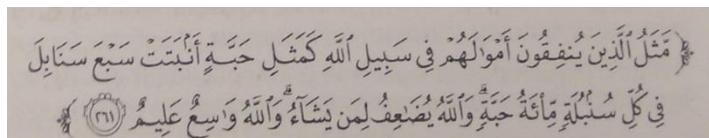 ﴿ مَّثَلُ ٱلَّذِينَ يُنفِقُونَ أَمْوَٰلَهُمْ فِى سَبِيلِ ٱللَّهِ كَمَثَلِ حَبَّةٍ أَنۢبَتَتْ سَبْعَ سَنَابِلَ
فِى كُلِّ سُنۢبُلَةٍ مِّا۟ئَةُ حَبَّةٍ ۗ وَٱللَّهُ يُضَٰعِفُ لِمَن يَشَآءُ ۗ وَٱللَّهُ وَٰسِعٌ عَلِيمٌ ٢٦١ ﴾